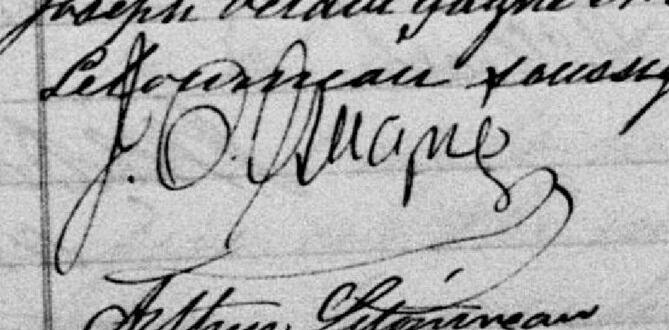 Joseph Octave Gagné et
Letourneau soussig
J. O. Gagné
Arthur Létourneau